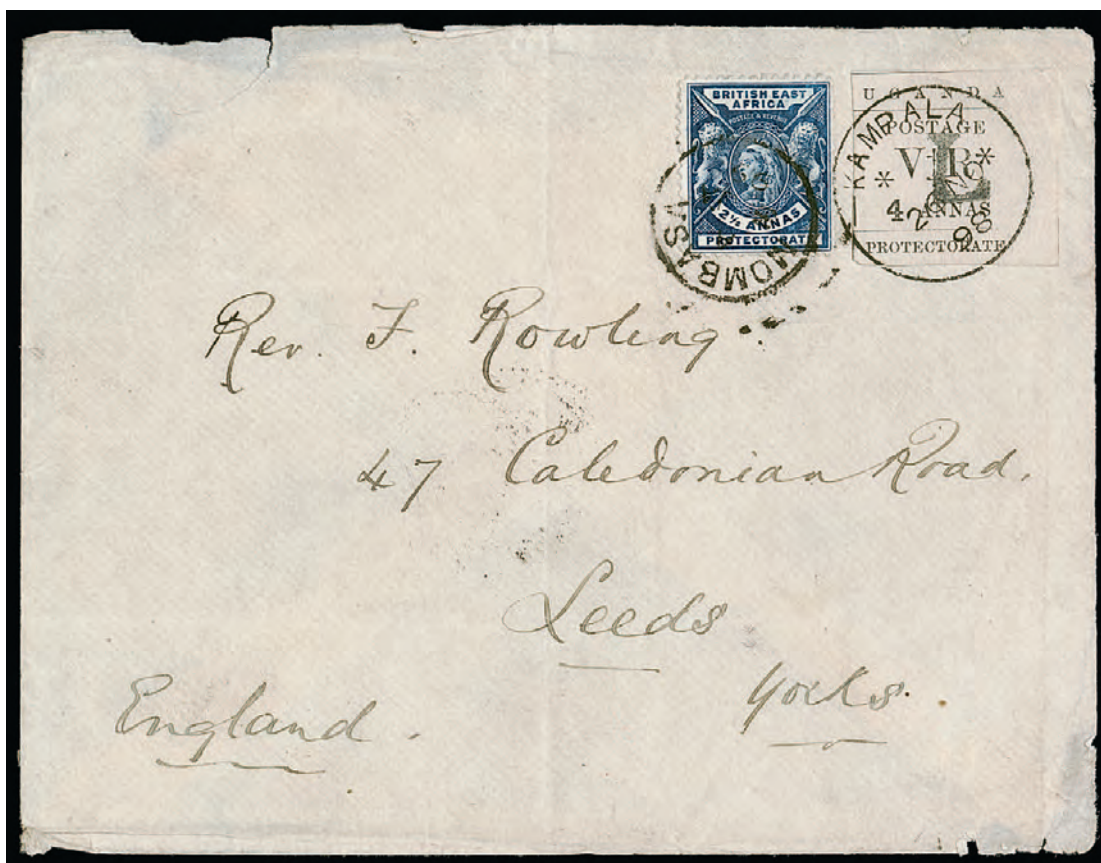 BRITISH EAST
AFRICA
POSTAGE & REVENUE
2½ ANNAS
PROTECTORATE
MOMBASA
UGANDA
POSTAGE
V R
L
4 ANNAS
PROTECTORATE
KAMPALA
98
Rev. F. Rowling.
47 Caledonian Road.
Leeds
Yorks.
England.